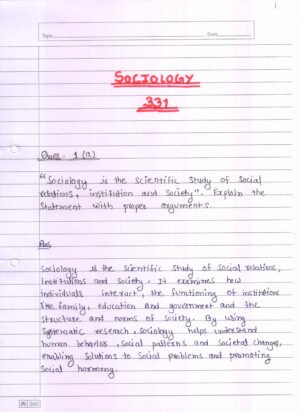 1.
Topic
Date
SOCIOLOGY
331
Ques- 1 (a)
"Sociology is the scientific study of social
relations, institution and society". Explain the
statement with proper arguments.
Ans
Sociology is the scientific study of social relations,
Institutions and society. It examines how
individuals interact, the functioning of institutions
like family, education and government and the
structure and norms of society. By using
systematic research, sociology helps understand
human behaviors, social patterns and societal changes,
enabling solutions to social problems and promoting
social harmony.